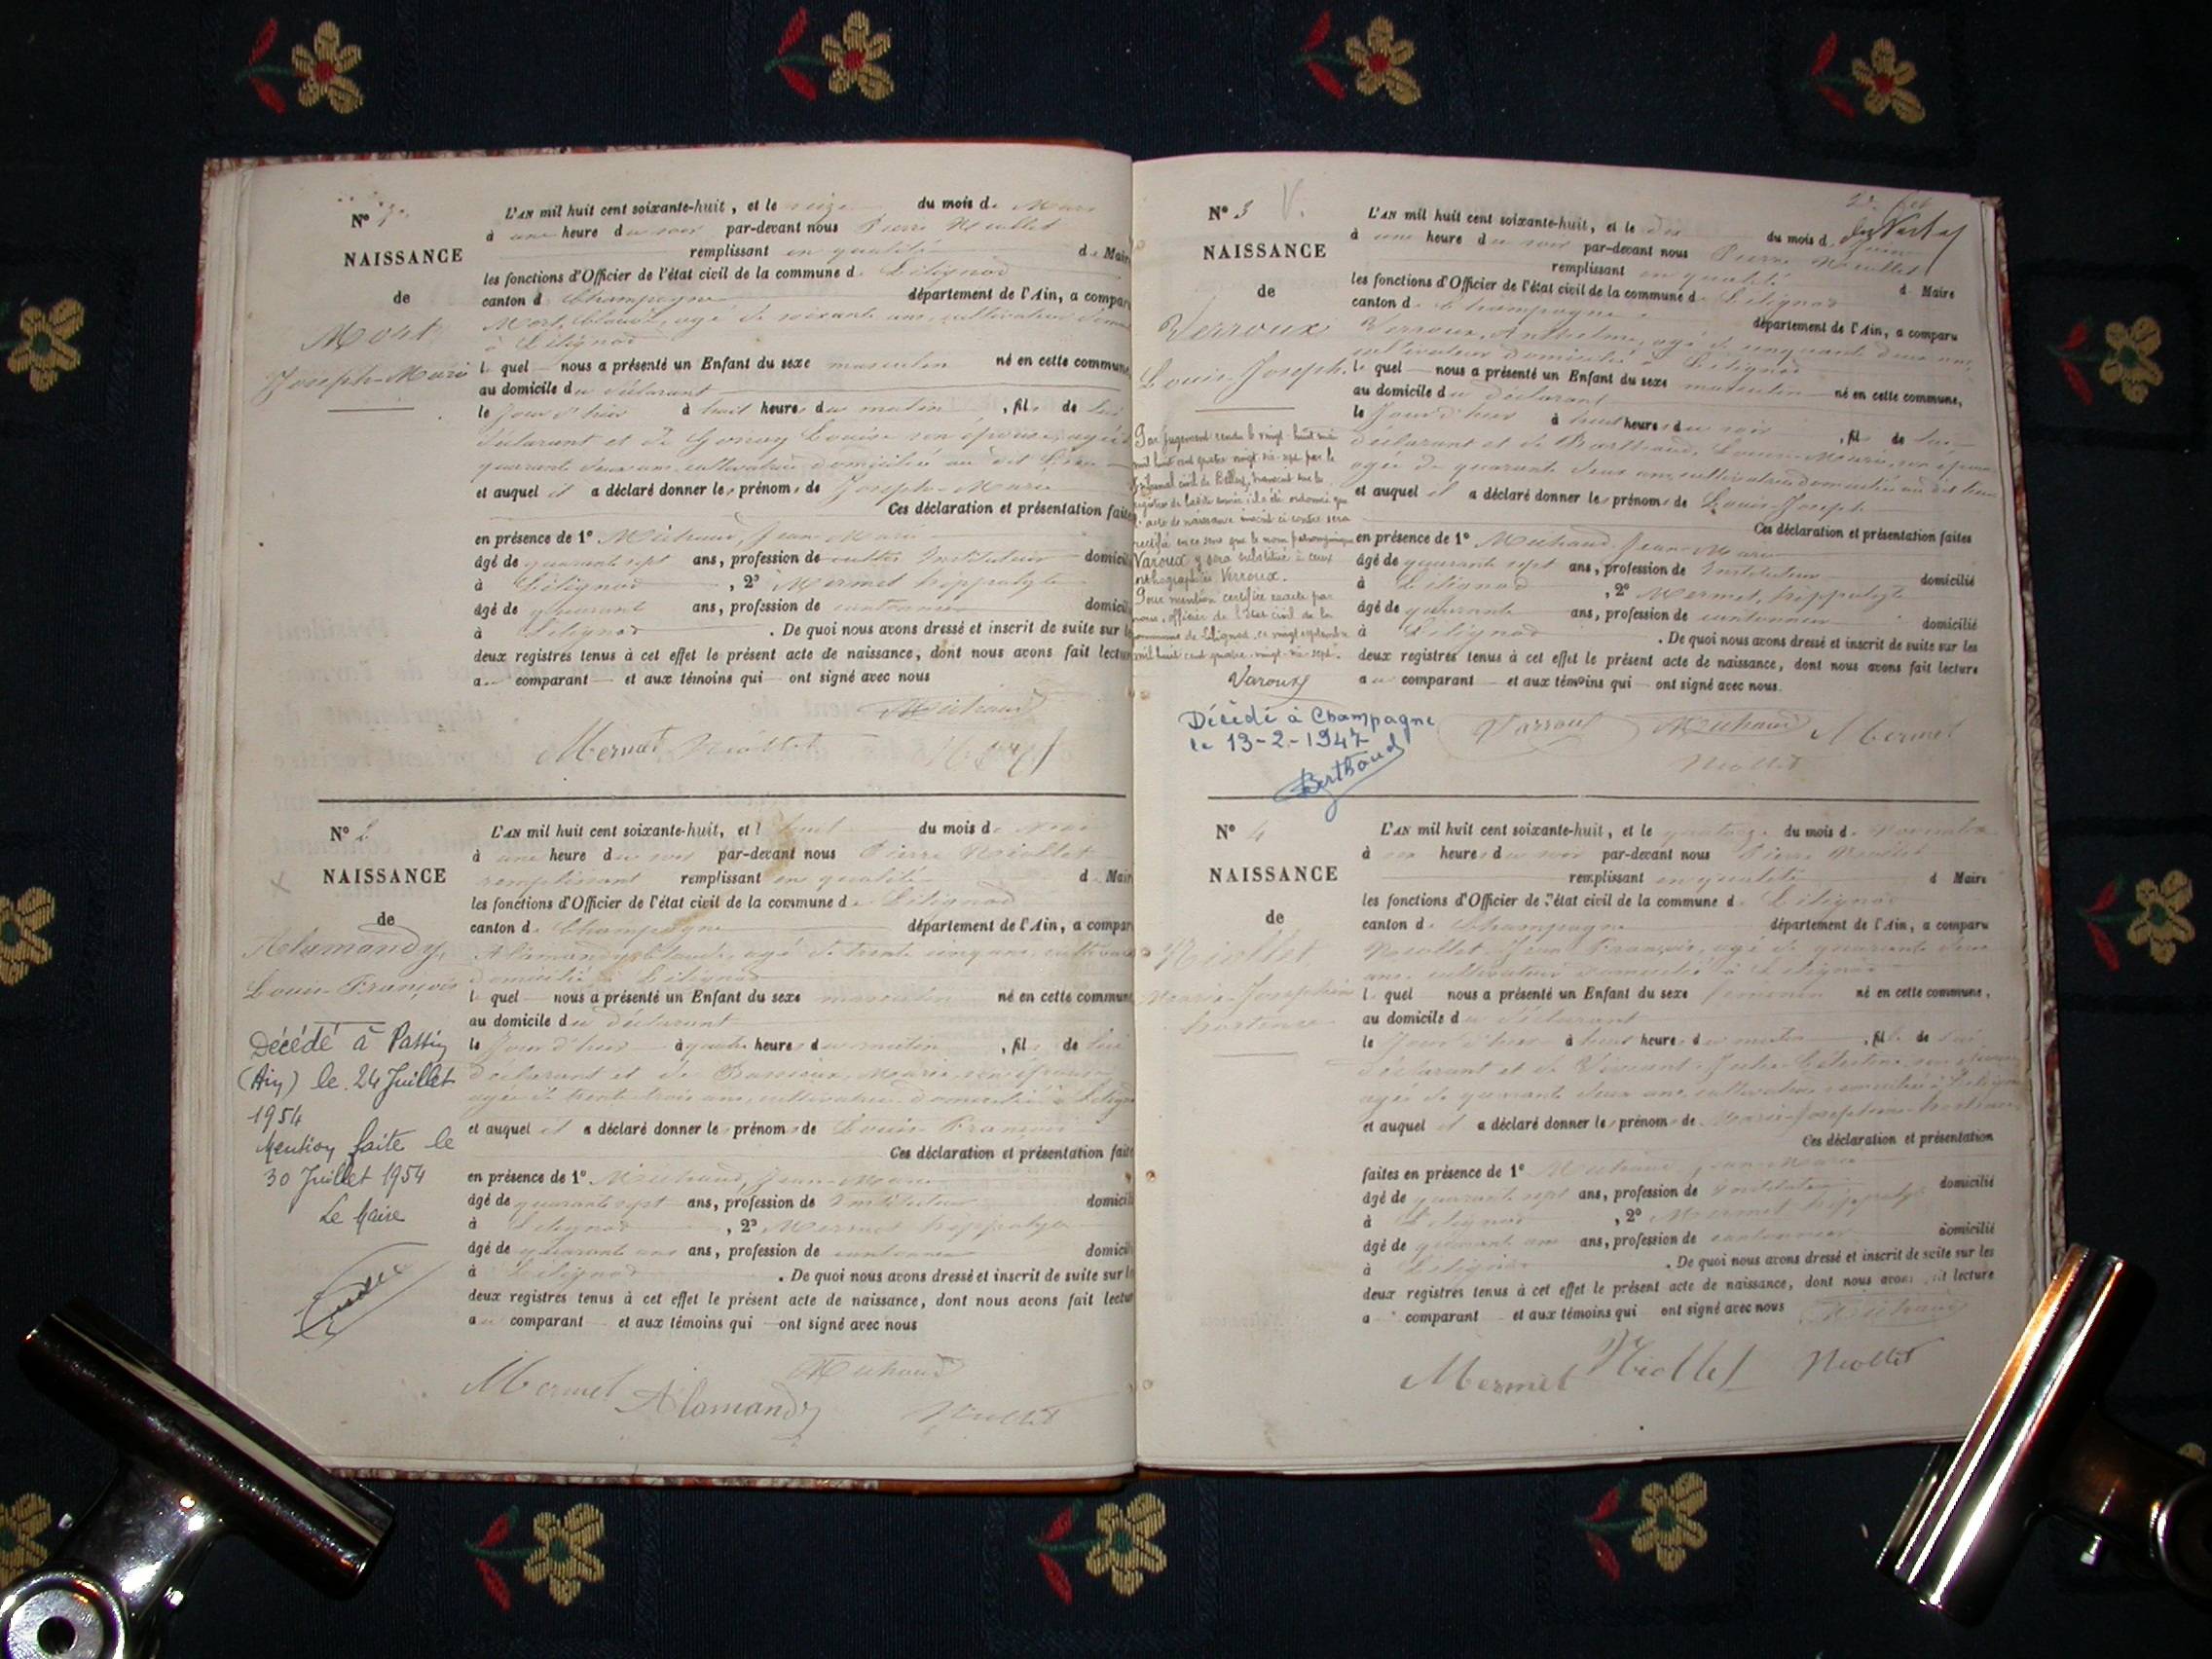 N° 1
NAISSANCE
de
Mort
Joseph-Marie
L'AN mil huit cent soixante-huit, et le seize du mois de Mars
à une heure du soir par-devant nous Pierre Niollet
remplissant en qualité de Maire
les fonctions d'Officier de l'état civil de la commune de Litignod
canton de Champagne département de l'Ain, a compar
Mort, Claude, agé de soixante ans, cultivateur
à Litignod
lequel nous a présenté un Enfant du sexe masculin né en cette commune
au domicile du déclarant
le jour d'hier à huit heures du matin, fils de lui
déclarant et de Louise son épouse, agée
quarante deux ans, cultivatrice domiciliée au dit lieu
et auquel il a déclaré donner les prénoms de Joseph-Marie
Ces déclaration et présentation faites
en présence de 1° Michaud, Jean-Marie
âgé de quarante sept ans, profession de Instituteur domicil
à Litignod, 2° Mermet hippolyte
âgé de quarante ans, profession de cantonnier domicil
à Litignod. De quoi nous avons dressé et inscrit de suite sur le
deux registres tenus à cet effet le présent acte de naissance, dont nous avons fait lectur
au comparant et aux témoins qui ont signé avec nous
Michaud
Mermet Niollet Mort
N° 2
NAISSANCE
de
Alamandy,
Louis-François
Décédé à Passin
(Ain) le 24 Juillet
1954
Mention faite le
30 Juillet 1954
Le Maire
L'AN mil huit cent soixante-huit, et le huit du mois de
à une heure du soir par-devant nous Pierre Niollet
remplissant remplissant en qualité de Mair
les fonctions d'Officier de l'état civil de la commune de Litignod
canton de Champagne département de l'Ain, a compar
Alamandy, Claude, agé de trente cinq ans, cultivateur
domicilié à Litignod
lequel nous a présenté un Enfant du sexe masculin né en cette commune
au domicile du déclarant
le jour d'hier à quatre heures du matin, fils de lui
déclarant et de Marie son épouse
agée de trente trois ans, cultivatrice domiciliée à Litignod
et auquel il a déclaré donner les prénoms de Louis-François
Ces déclaration et présentation faite
en présence de 1° Michaud, Jean-Marie
âgé de quarante sept ans, profession de Instituteur domicil
à Litignod, 2° Mermet hippolyte
âgé de quarante ans ans, profession de cantonnier domicil
à Litignod. De quoi nous avons dressé et inscrit de suite sur le
deux registres tenus à cet effet le présent acte de naissance, dont nous avons fait lectur
au comparant et aux témoins qui ont signé avec nous
Michaud
Mermet Alamandy Niollet
N° 3 V.
NAISSANCE
de
Verroux
Louis-Joseph.
Par jugement rendu le vingt-huit mai
mil huit cent quatre-vingt-dix-sept par le
tribunal civil de Belley, transcrit sur les
registres de ladite année il a été ordonné que
l'acte de naissance inscrit ci-contre sera
rectifié en ce sens que le nom patronymique
Varoux y sera substitué à ceux
orthographiés Verroux.
Pour mention certifiée exacte par
nous, officier de l'état civil de la
commune de Litignod, ce vingt septembre
mil huit cent quatre-vingt-dix-sept.
Varoux
Décédé à Champagne
le 13-2-1947
Berthoud
L'AN mil huit cent soixante-huit, et le dix du mois de Juin
à une heure du soir par-devant nous Pierre Niollet
remplissant en qualité de Maire
les fonctions d'Officier de l'état civil de la commune de Litignod
canton de Champagne département de l'Ain, a comparu
Verroux, Anthelme, agé de cinquante deux ans,
cultivateur domicilié à Litignod
lequel nous a présenté un Enfant du sexe masculin né en cette commune,
au domicile du déclarant
le jour d'hier à huit heures du soir, fils de lui
déclarant et de Louise-Marie, son épouse
agée de quarante deux ans, cultivatrice domiciliée au dit lieu
et auquel il a déclaré donner les prénoms de Louis-Joseph
Ces déclaration et présentation faites
en présence de 1° Michaud, Jean-Marie
âgé de quarante sept ans, profession de Instituteur domicilié
à Litignod, 2° Mermet, hippolyte
âgé de quarante ans, profession de cantonnier domicilié
à Litignod. De quoi nous avons dressé et inscrit de suite sur les
deux registres tenus à cet effet le présent acte de naissance, dont nous avons fait lecture
au comparant et aux témoins qui ont signé avec nous.
Varroux Michaud Mermet
Niollet
N° 4
NAISSANCE
de
Niollet
Marie-Joséphine
hortense
L'AN mil huit cent soixante-huit, et le quatorze du mois de Novembre
à heures du soir par-devant nous Pierre Niollet
remplissant en qualité de Maire
les fonctions d'Officier de l'état civil de la commune de Litignod
canton de Champagne département de l'Ain, a comparu
Niollet Jean François, agé de quarante deux
ans, cultivateur domicilié à Litignod
lequel nous a présenté un Enfant du sexe féminin né en cette commune,
au domicile du déclarant
le jour d'hier à huit heures du matin, fille de lui
déclarant et de Julie Célestine son épouse
agée de quarante deux ans, cultivatrice domiciliée à Litignod
et auquel il a déclaré donner les prénoms de Marie-Joséphine-hortense
Ces déclaration et présentation
faites en présence de 1° Michaud, Jean-Marie
âgé de quarante sept ans, profession de Instituteur domicilié
à Litignod, 2° Mermet hippolyte
âgé de quarante ans ans, profession de cantonnier domicilié
à Litignod. De quoi nous avons dressé et inscrit de suite sur les
deux registres tenus à cet effet le présent acte de naissance, dont nous avons fait lecture
au comparant et aux témoins qui ont signé avec nous Michaud
Mermet Niollet Niollet